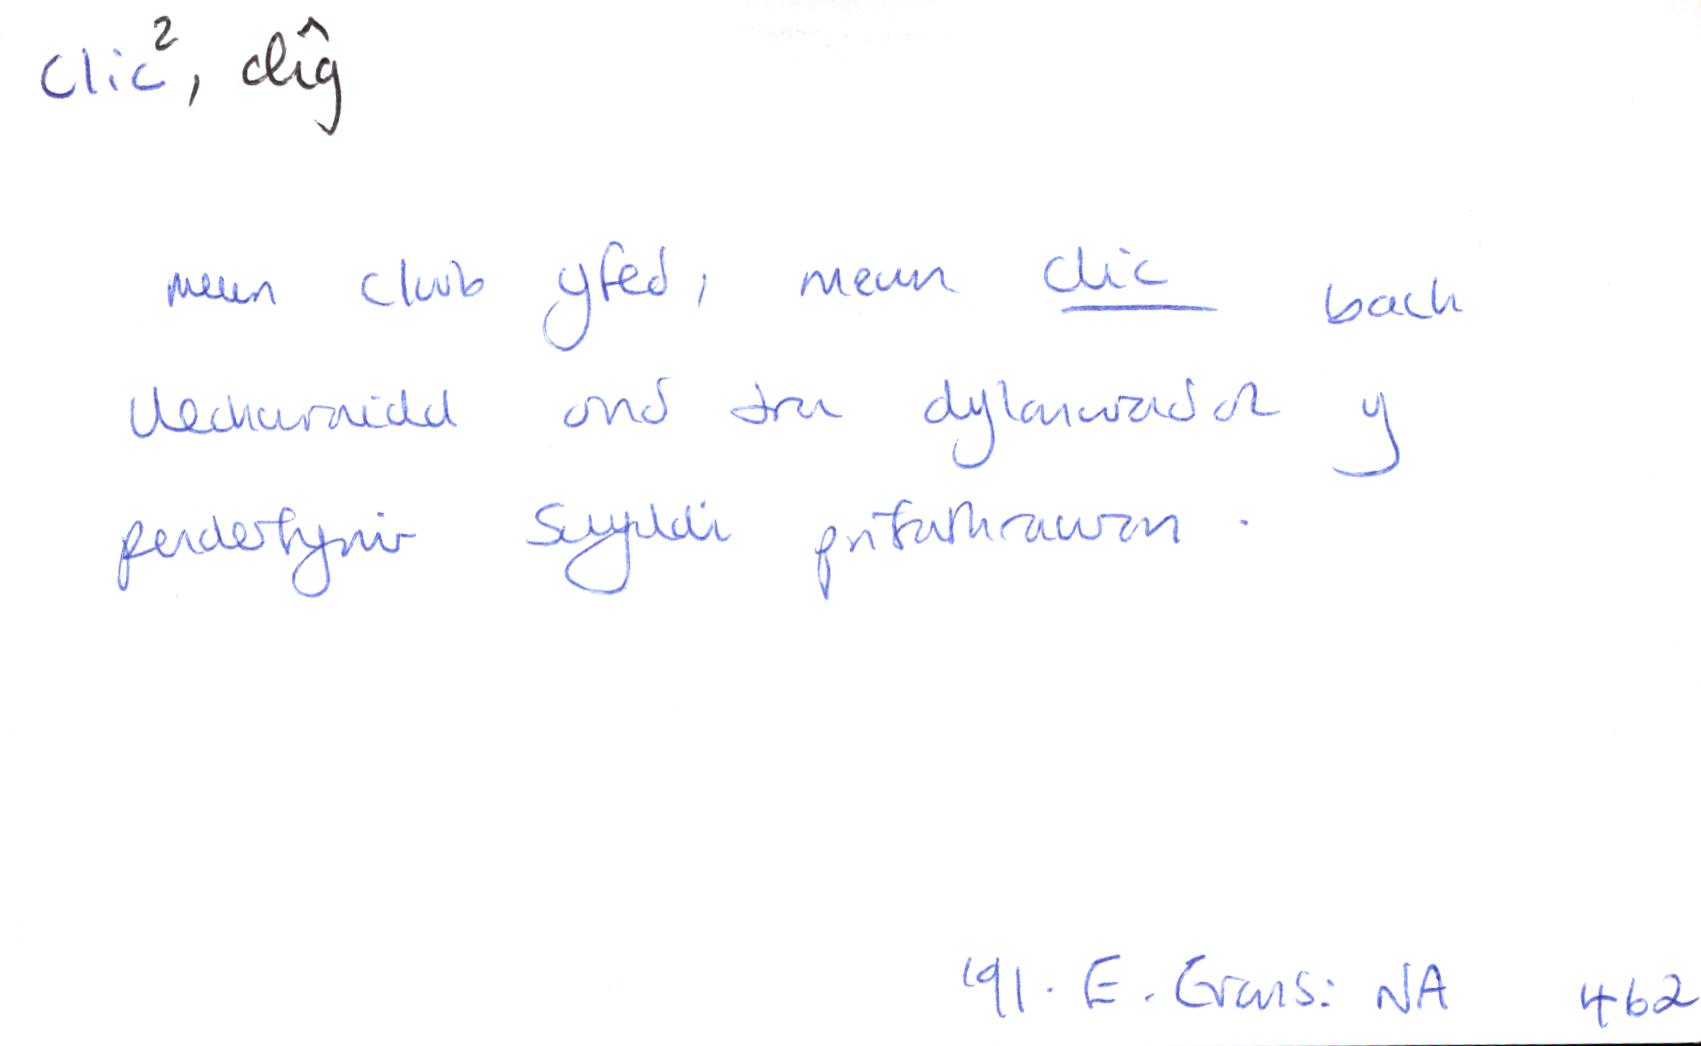 clic², clîg
mewn clwb yfed, mewn clic bach
llechwraidd ond tra dylanwadol y
penderfynir swyddi prifathrawon.
'91. E. Evans: NA 462